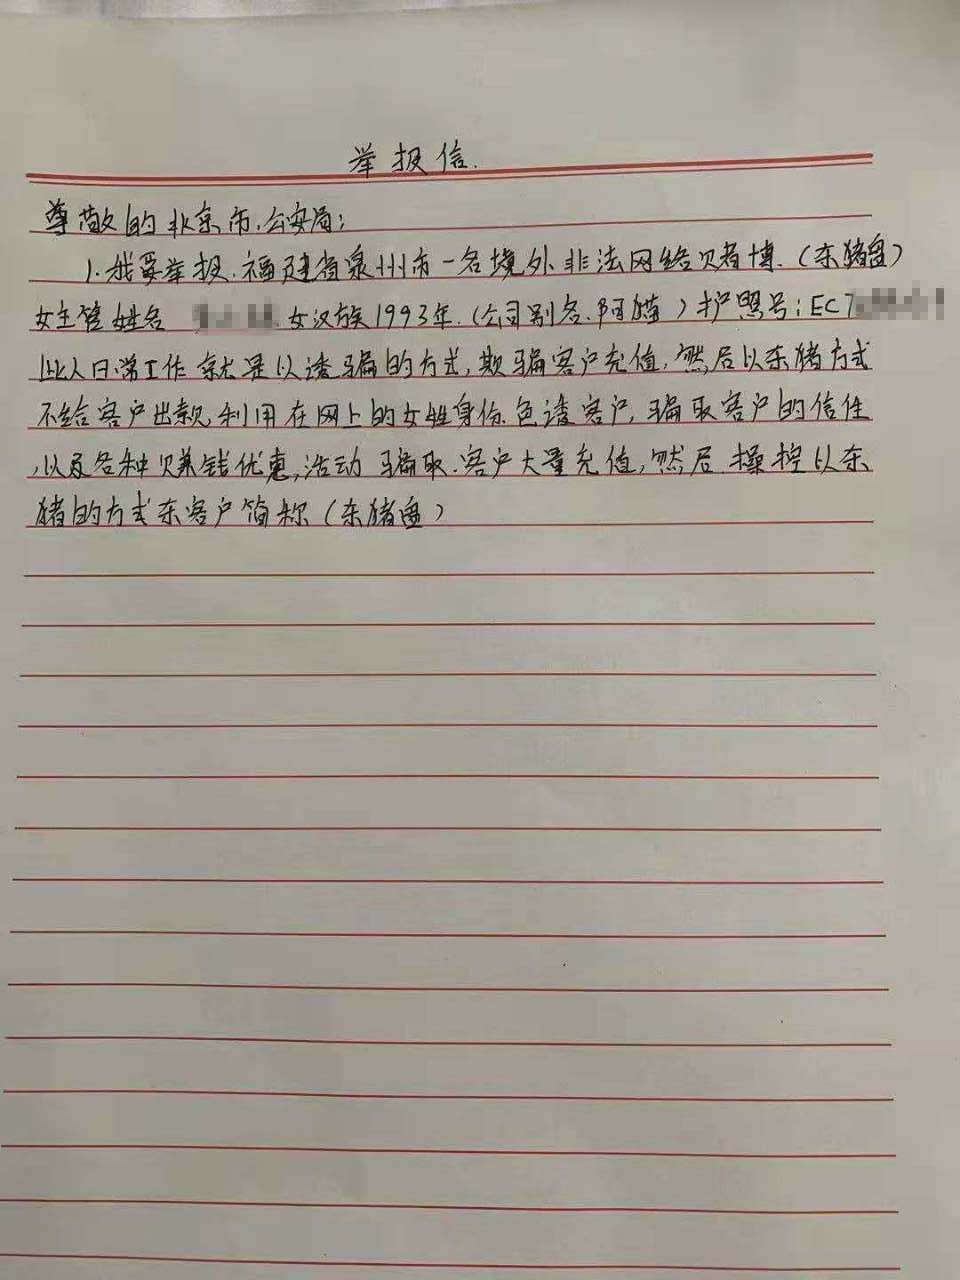 举报信.
尊敬的北京市.公安局：
1.我要举报.福建省泉州市一名境外非法网络赌博.（杀猪盘）
女主管姓名 女汉族1993年.（公司别名.阿猫）护照号：EC7
此人日常工作就是以诱骗的方式,欺骗客户充值,然后以杀猪方式
不给客户出款,利用在网上的女性身份.色诱客户,骗取客户的信任
,以及各种赚钱优惠,活动骗取.客户大量充值,然后.操控以杀
猪的方式杀客户简称（杀猪盘）